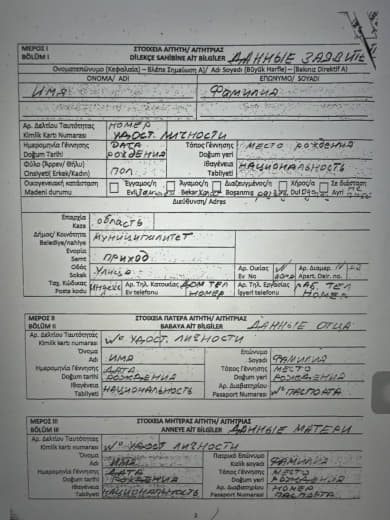 ΜΕΡΟΣ Ι ΣΤΟΙΧΕΙΑ ΑΙΤΗΤΗ/ ΑΙΤΗΤΡΙΑΣ
BÖLÜM I DİLEKÇE SAHİBİNE AİT BİLGİLER ДАННЫЕ ЗАЯВИТЕ
Ονοματεπώνυμο (Κεφαλαία) – Βλέπε Σημείωση Α)/ Adı Soyadı (Büyük Harfle) – (Bakınız Direktif A)
ΟΝΟΜΑ/ ADI ΕΠΩΝΥΜΟ/ SOYADI
ИМЯ ФАМИЛИЯ
Αρ. Δελτίου Ταυτότητας НОМЕР
Kimlik Kartı Numarası УДОСТ. ЛИЧНОСТИ
Ημερομηνία Γέννησης ДАТА Τόπος Γέννησης МЕСТО РОЖДЕНИЯ
Doğum Tarihi РОЖДЕНИЯ Doğum yeri
Φύλο (Άρρεν/ Θήλυ) ПОЛ Ιθαγένεια НАЦИОНАЛЬНОСТЬ
Cinsiyeti( Erkek/Kadın) Tabiiyeti
Οικογενειακή κατάσταση Έγγαμος/η Άγαμος/η Διαζευγμένος/η Χήρος/α Σε διάσταση
Medeni durumu Evli Bekar Boşanmış Dul Ayrı
Διεύθυνση/ Adres
Επαρχία ОБЛАСТЬ
Kaza
Δήμος/ Κοινότητα МУНИЦИПИЛИТЕТ
Belediye/nahiye
Ενορία ПРИХОД
Semt
Οδός УЛИЦА Αρ. Οικίας Αρ. Διαμερ.
Sokak Ev No Apart. Dair. no.
Ταχ. Κώδικας ИНДЕКС Αρ. Τηλ. Κατοικίας ДОМ ТЕЛ Αρ. Τηλ. Εργασίας РАБ. ТЕЛ
Posta kodu Ev telefonu НОМЕР İşyeri telefonu НОМЕР
ΜΕΡΟΣ ΙΙ ΣΤΟΙΧΕΙΑ ΠΑΤΕΡΑ ΑΙΤΗΤΗ/ ΑΙΤΗΤΡΙΑΣ
BÖLÜM II BABAYA AİT BİLGİLER ДАННЫЕ ОТЦА
Αρ. Δελτίου Ταυτότητας № УДОСТ. ЛИЧНОСТИ
Kimlik kartı numarası
Όνομα ИМЯ Επώνυμο ФАМИЛИЯ
Adı Soyadı
Ημερομηνία Γέννησης ДАТА Τόπος Γέννησης МЕСТО
Doğum tarihi РОЖДЕНИЯ Doğum yeri РОЖДЕНИЯ
Ιθαγένεια НАЦИОНАЛЬНОСТЬ Αρ. Διαβατηρίου № ПАСПОТА
Tabiiyeti Pasaport Numarası
ΜΕΡΟΣ ΙΙΙ ΣΤΟΙΧΕΙΑ ΜΗΤΕΡΑΣ ΑΙΤΗΤΗ/ ΑΙΤΗΤΡΙΑΣ
BÖLÜM III ANNEYE AİT BİLGİLER ДАННЫЕ МАТЕРИ
Αρ. Δελτίου Ταυτότητας № УДОСТ ЛИЧНОСТИ
Kimlik kartı numarası
Όνομα ИМЯ Πατρικό Επώνυμο ФАМИЛИЯ
Adı Kızlık soyadı
Ημερομηνία Γέννησης ДАТА Τόπος Γέννησης МЕСТО
Doğum tarihi РОЖДЕНИЯ Doğum yeri РОЖДЕНИЯ
Ιθαγένεια НАЦИОНАЛЬНОСТЬ Αρ. Διαβατηρίου НОМЕР
Tabiiyeti Pasaport Numarası ПАСПОРТА